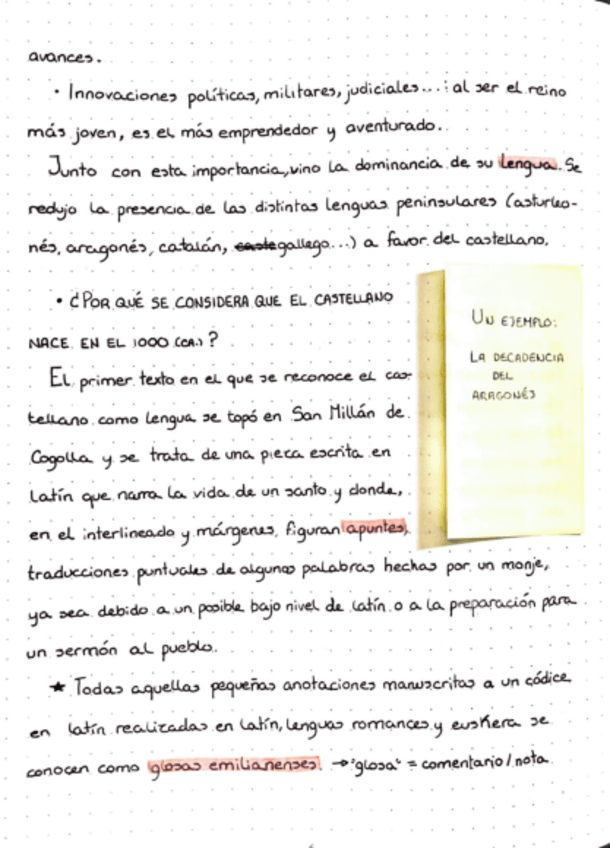 avances.
· Innovaciones políticas, militares, judiciales...: al ser el reino
más joven, es el más emprendedor y aventurado.
Junto con esta importancia, vino la dominancia de su lengua. Se
redujo la presencia de las distintas lenguas peninsulares (asturleo-
nés, aragonés, catalán, caste gallego...) a favor del castellano.
· ¿POR QUÉ SE CONSIDERA QUE EL CASTELLANO
NACE EN EL 1000 (CA.)?
El primer texto en el que se reconoce el cas-
tellano como lengua se topó en San Millán de
Cogolla y se trata de una pieca escrita en
latín que narra la vida de un santo y donde,
en el interlineado y márgenes, figuran apuntes,
traducciones puntuales de algunas palabras hechas por un monje,
ya sea debido a un posible bajo nivel de latín o a la preparación para
un sermón al pueblo.
★ Todas aquellas pequeñas anotaciones manuscritas a un códice
en latín realizadas en latín, lenguas romances y euskera se
conocen como glosas emilianenses. → "glosa" = comentario / nota
UN EJEMPLO:
LA DECADENCIA
DEL
ARAGONÉS